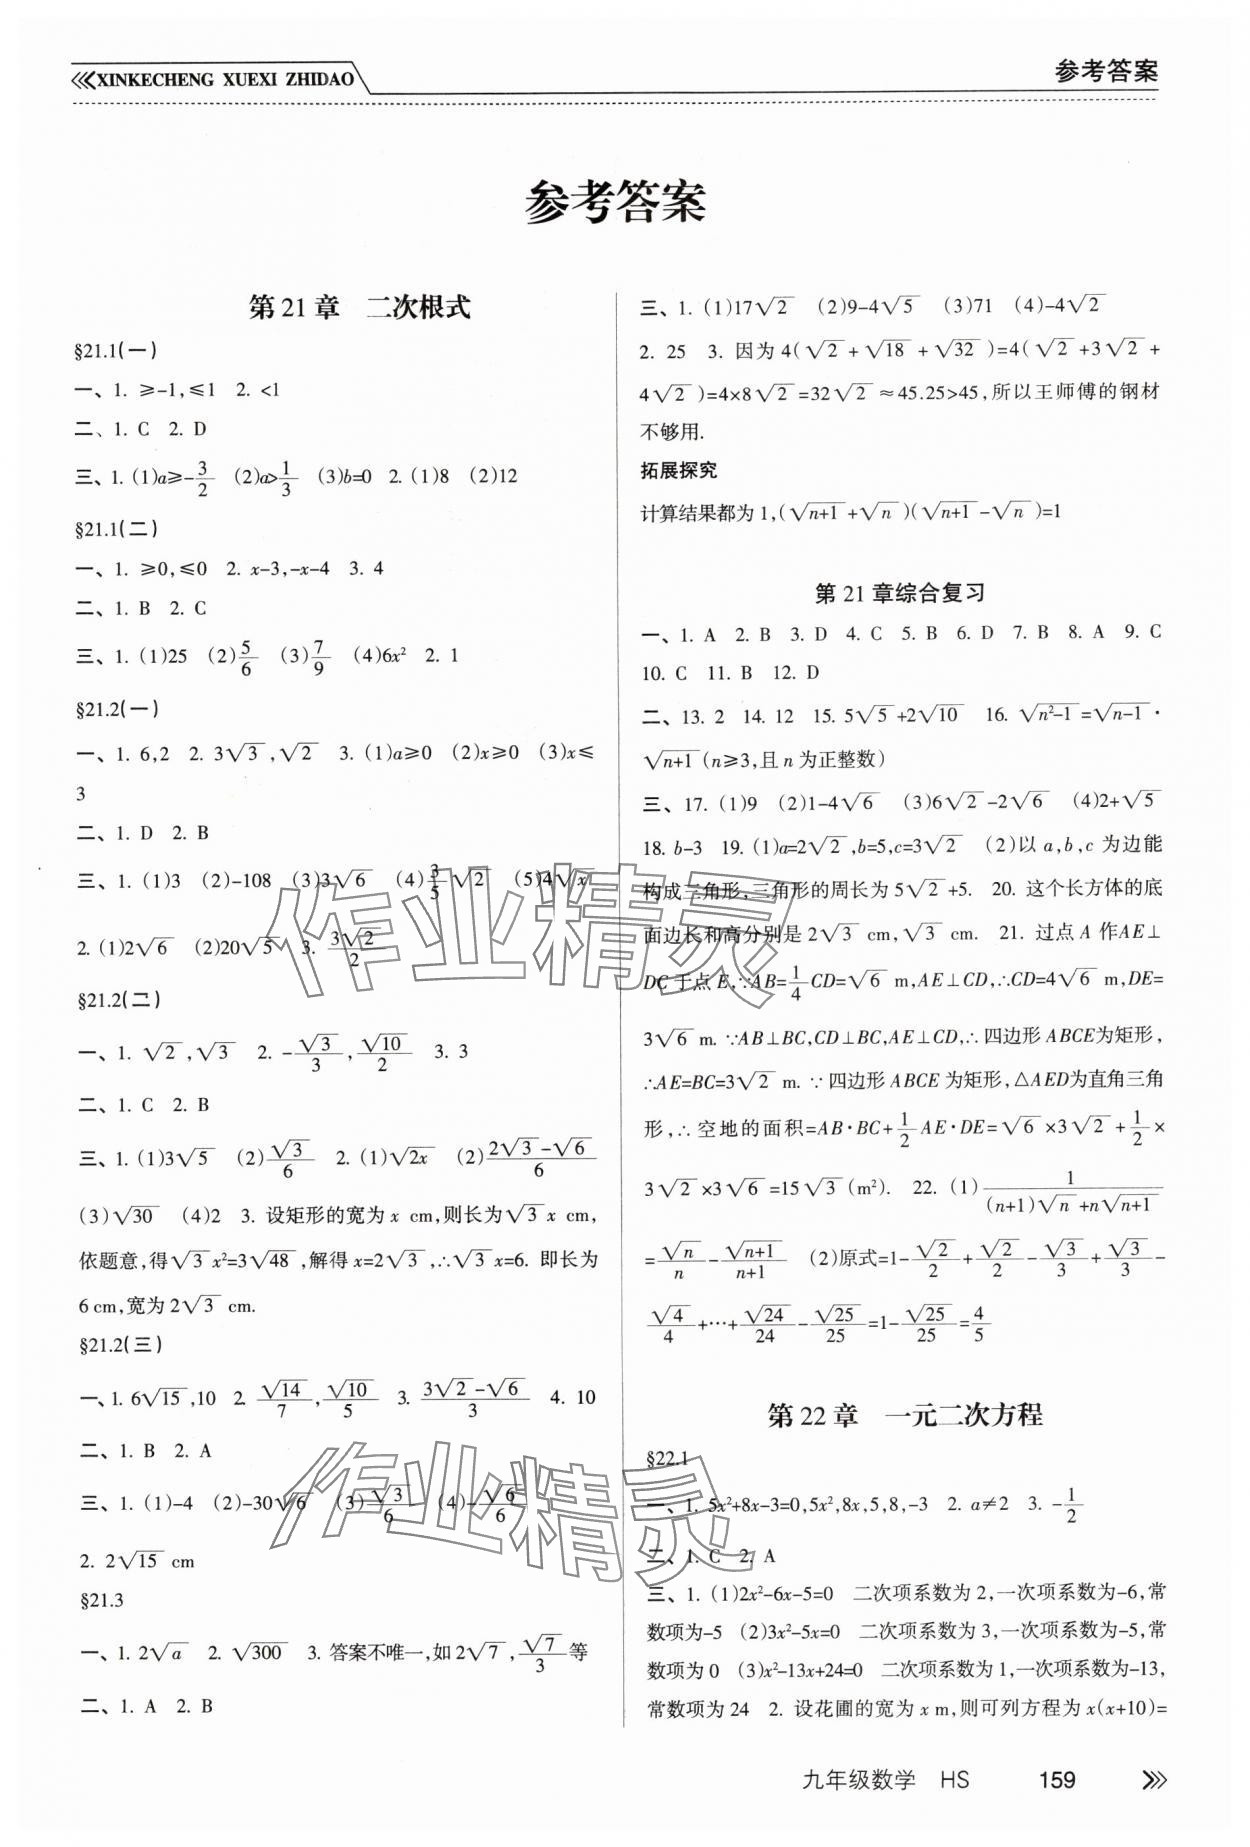 XINKECHENG XUEXI ZHIDAO
参考答案
参考答案
第21章 二次根式
§21.1(一)
一、1. ≥-1,≤1 2. <1
二、1. C 2. D
三、1. (1)a≥-3/2 (2)a>1/3 (3)b=0 2. (1)8 (2)12
§21.1(二)
一、1. ≥0,≤0 2. x-3,-x-4 3. 4
二、1. B 2. C
三、1. (1)25 (2)5/6 (3)7/9 (4)6x² 2. 1
§21.2(一)
一、1. 6,2 2. 3√3,√2 3. (1)a≥0 (2)x≥0 (3)x≤
3
二、1. D 2. B
三、1. (1)3 (2)-108 (3)3√6 (4)3/5√2 (5)4√x
2. (1)2√6 (2)20√5 3. 3√2/2
§21.2(二)
一、1. √2,√3 2. -√3/3,√10/2 3. 3
二、1. C 2. B
三、1. (1)3√5 (2)√3/6 2. (1)√2x (2)(2√3-√6)/6
(3)√30 (4)2 3. 设矩形的宽为 x cm,则长为√3x cm,
依题意,得√3x²=3√48,解得 x=2√3,∴√3x=6. 即长为
6 cm,宽为 2√3 cm.
§21.2(三)
一、1. 6√15,10 2. √14/7,√10/5 3. (3√2-√6)/3 4. 10
二、1. B 2. A
三、1. (1)-4 (2)-30√6 (3)√3/6 (4)-√6/6
2. 2√15 cm
§21.3
一、1. 2√a 2. √300 3. 答案不唯一,如 2√7,√7/3等
二、1. A 2. B
三、1. (1)17√2 (2)9-4√5 (3)71 (4)-4√2
2. 25 3. 因为 4(√2+√18+√32)=4(√2+3√2+
4√2)=4×8√2=32√2≈45.25>45,所以王师傅的钢材
不够用.
拓展探究
计算结果都为 1,(√n+1+√n)(√n+1-√n)=1
第21章综合复习
一、1. A 2. B 3. D 4. C 5. B 6. D 7. B 8. A 9. C
10. C 11. B 12. D
二、13. 2 14. 12 15. 5√5+2√10 16. √n²-1=√n-1·
√n+1(n≥3,且 n 为正整数)
三、17. (1)9 (2)1-4√6 (3)6√2-2√6 (4)2+√5
18. b-3 19. (1)a=2√2,b=5,c=3√2 (2)以 a,b,c 为边能
构成三角形,三角形的周长为 5√2+5. 20. 这个长方体的底
面边长和高分别是 2√3 cm,√3 cm. 21. 过点 A 作AE⊥
DC于点E,∵AB=1/4CD=√6 m,AE⊥CD,∴CD=4√6 m,DE=
3√6 m. ∵AB⊥BC,CD⊥BC,AE⊥CD,∴四边形 ABCE为矩形,
∴AE=BC=3√2 m. ∵四边形 ABCE 为矩形,△AED为直角三角
形,∴空地的面积=AB·BC+1/2AE·DE=√6×3√2+1/2×
3√2×3√6=15√3(m²). 22. (1)1/((n+1)√n+n√n+1)
=√n/n-√n+1/n+1 (2)原式=1-√2/2+√2/2-√3/3+√3/3-
√4/4+…+√24/24-√25/25=1-√25/25=4/5
第22章 一元二次方程
§22.1
一、1. 5x²+8x-3=0,5x²,8x,5,8,-3 2. a≠2 3. -1/2
二、1. C 2. A
三、1. (1)2x²-6x-5=0 二次项系数为 2,一次项系数为-6,常
数项为-5 (2)3x²-5x=0 二次项系数为 3,一次项系数为-5,常
数项为 0 (3)x²-13x+24=0 二次项系数为 1,一次项系数为-13,
常数项为 24 2. 设花圃的宽为 x m,则可列方程为 x(x+10)=
九年级数学 HS 159
作业精灵
作业精灵